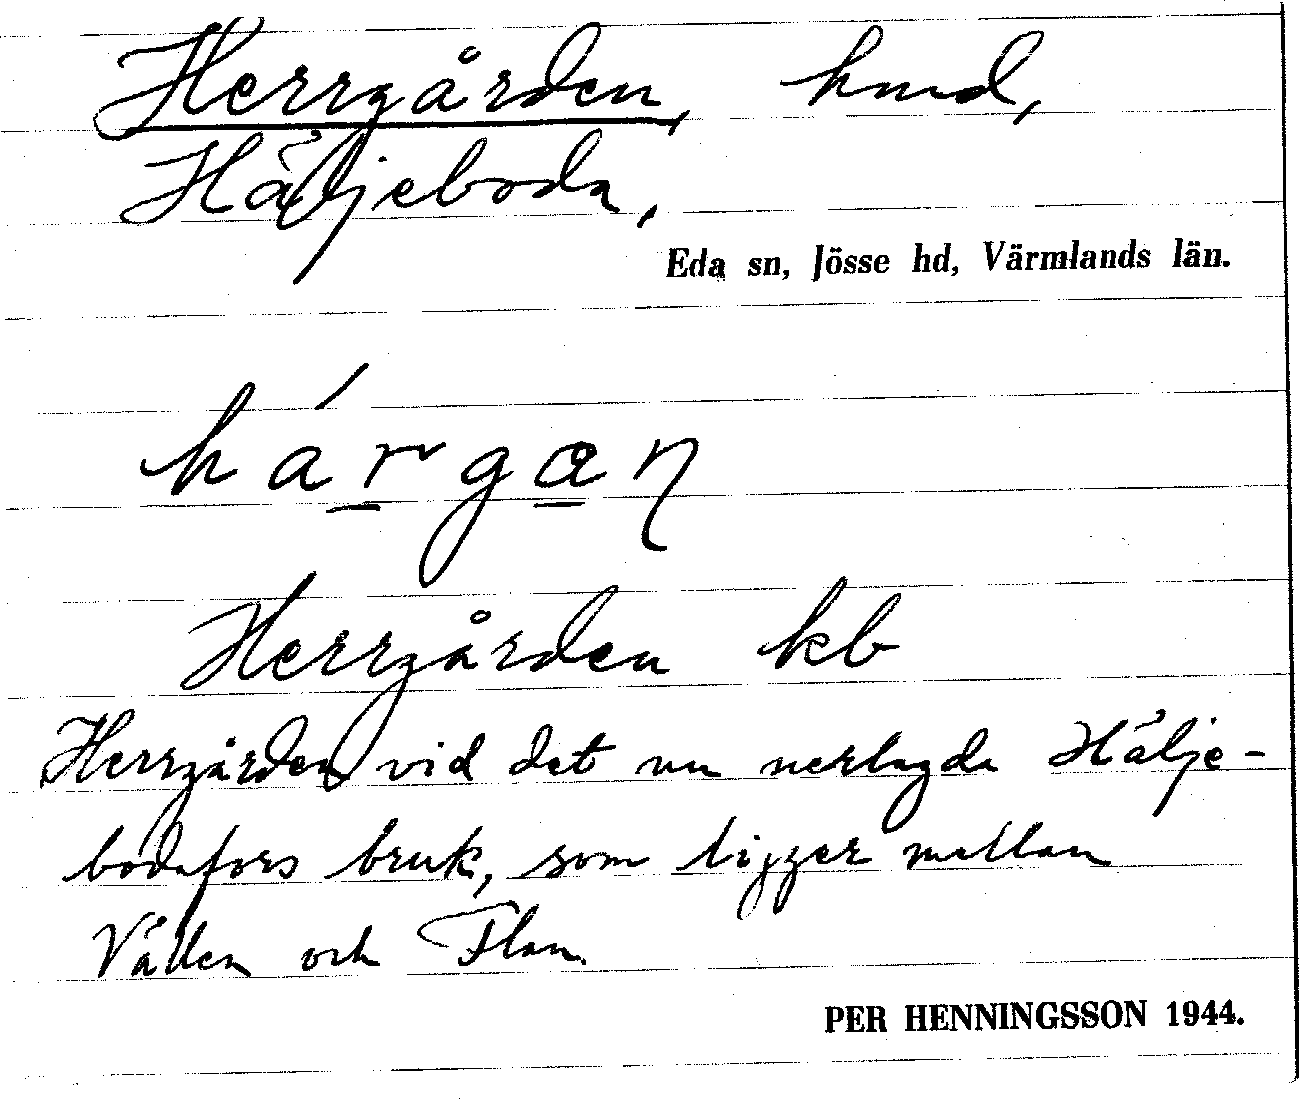 Herrgården, hmd,
Häljeboda,
Eda sn, Jösse hd, Värmlands län.
hárgan
Herrgården kb
Herrgården vid det nu nerlagda Hälje-
bodafors bruk, som ligger mellan
Vällen och Flan.
PER HENNINGSSON 1944.